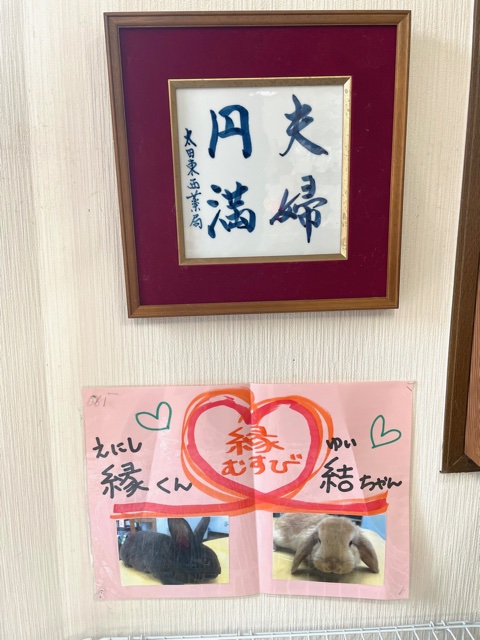 夫婦
円満
太田東西薬局
縁
むすび
えにし
縁くん
ゆい
結ちゃん